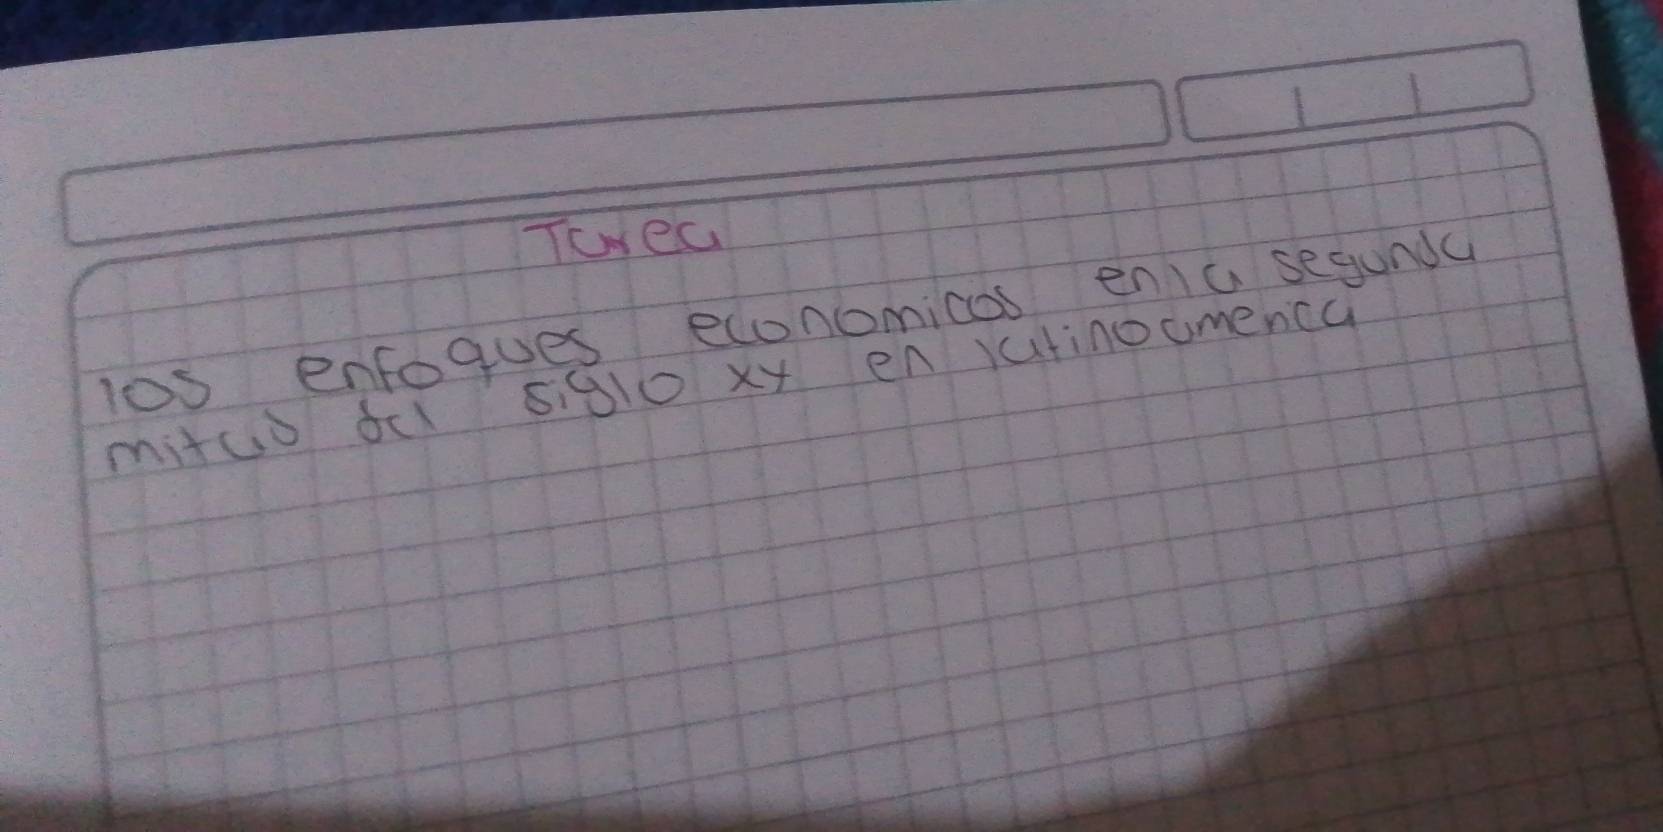 Tarea
los enfoques economicos en la segunda
mitad del siglo xx en latinoamerica